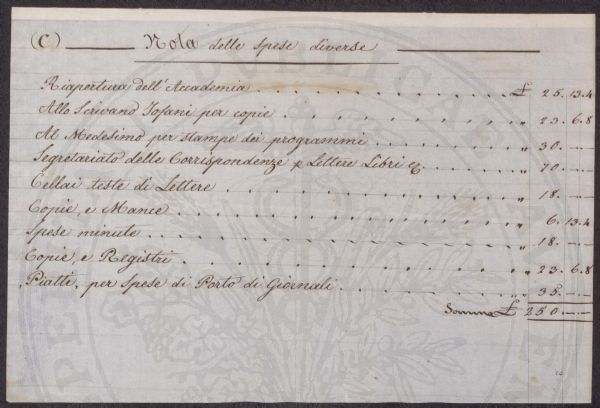 (C) Nota delle spese diverse
Riapertura dell'Accademia . . . . . . . . £ 25. 13. 4
Allo Scrivano Tofani per copie . . . . . . . „ 23. 6. 8
Al Medesimo per stampe dei programmi . . . . . „ 30. — —
Segretariato delle Corrispondenze p Lettere Libri &c. „ 70. — —
Cellai teste di Lettere . . . . . . . . „ 18. — —
Copie, e Mance . . . . . . . . „ 6. 13. 4
Spese minute . . . . . . . . „ 18. — —
Copie, e Registri . . . . . . . . „ 23. 6. 8
Piatti, per Spese di Porto di Giornali . . . . . „ 35. — —
Somma £ 250. — —